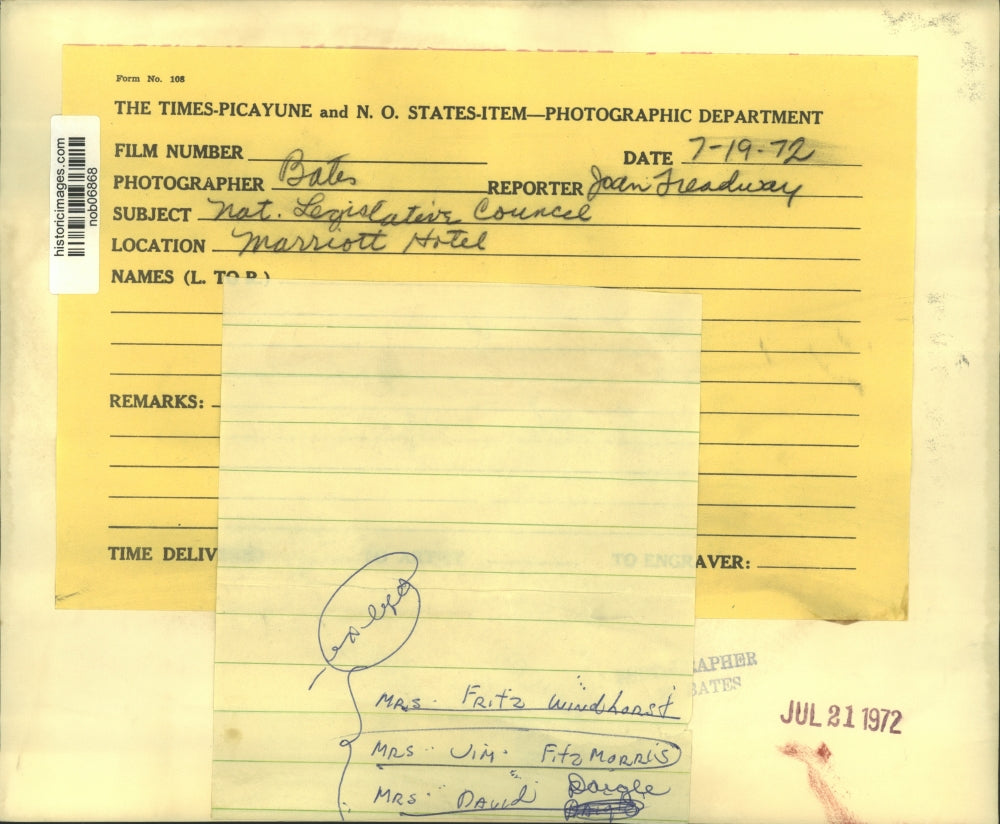 Form No. 108
THE TIMES-PICAYUNE and N. O. STATES-ITEM—PHOTOGRAPHIC DEPARTMENT
FILM NUMBER
DATE 7-19-72
PHOTOGRAPHER Bates
REPORTER Joan Treadway
SUBJECT Nat. Legislative Council
LOCATION Marriott Hotel
NAMES (L. TO R.)
REMARKS:
TIME DELIV
TO ENGRAVER:
historicimages.com
nob06868
Mrs. Fritz Windhorst
Mrs. Jim Fitzmorris
Mrs. David Daigle
APHER
BATES
JUL 21 1972